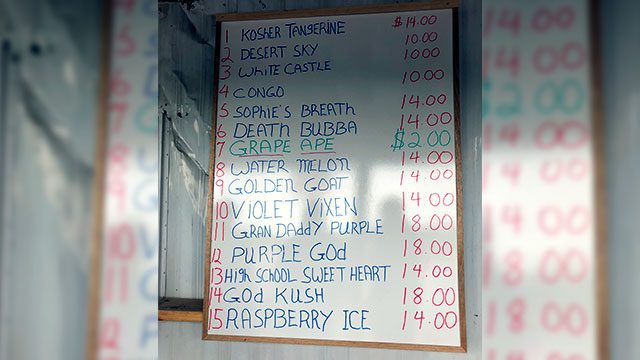 1 KOSHER TANGERINE $14.00
2 DESERT SKY 10.00
3 WHITE CASTLE 10.00
4 CONGO 10.00
5 SOPHIE'S BREATH 14.00
6 DEATH BUBBA 14.00
7 GRAPE APE $2.00
8 WATER MELON 14.00
9 GOLDEN GOAT 14.00
10 VIOLET VIXEN 14.00
11 GRAN DADDY PURPLE 18.00
12 PURPLE GOD 18.00
13 HIGH SCHOOL SWEET HEART 14.00
14 GOD KUSH 18.00
15 RASPBERRY ICE 14.00